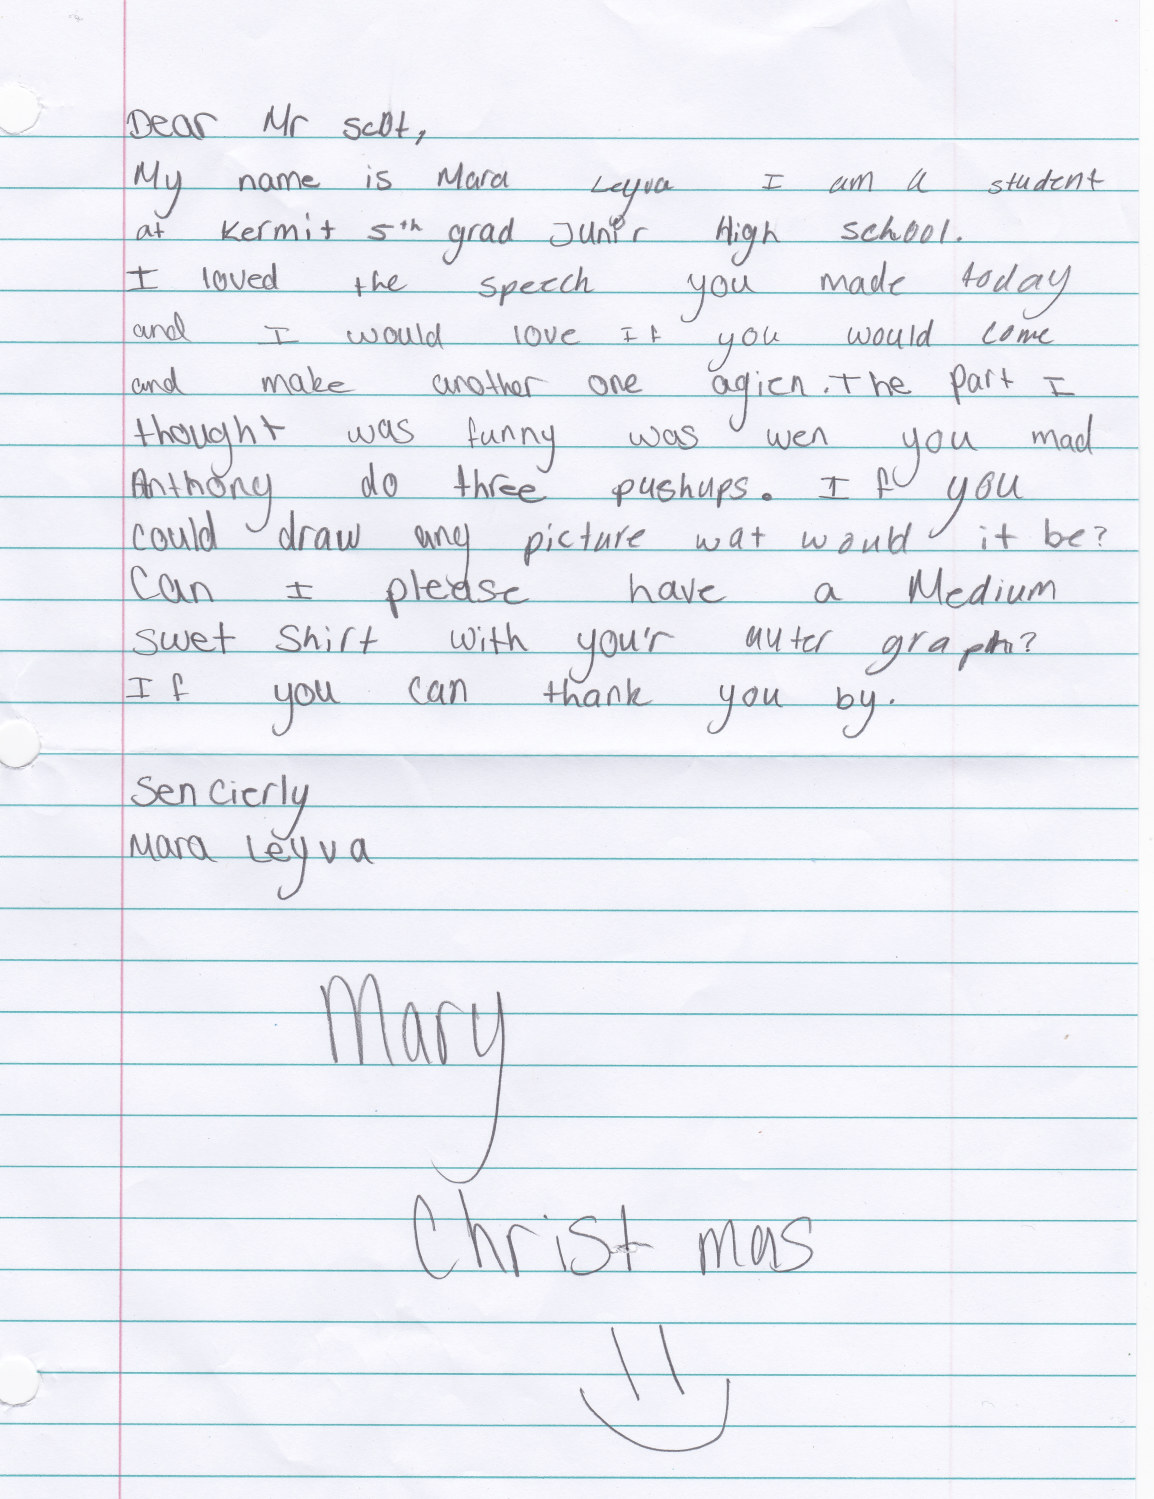 Dear Mr scot,
My name is Mara Leyva I am a student
at Kermit 5th grad Junir High school.
I loved the speech you made today
and I would love If you would come
and make another one agien. The part I
thought was funny was wen you mad
Anthony do three pushups. If you
could draw any picture wat woud it be?
Can I please have a Medium
swet Shirt with you'r auter graph?
If you can thank you by.
Sencierly
Mara Leyva
Mary
Christmas